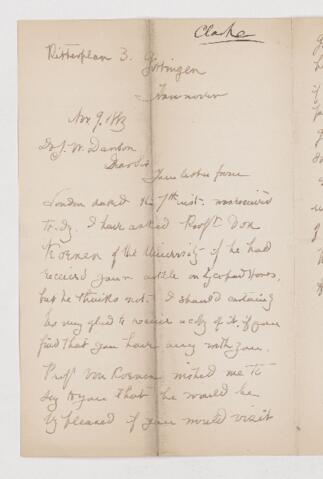 Clarke
Ritterplan 3. Göttingen
Hannover
Nov 9. 1883
Dr J. W. Dawson
Dear Sir
Your letter from
London dated the 7th inst. was received
to-day. I have asked Prof. Von
Koenen of the University if he had
received your article on
but he thinks not. I should certainly
be very glad to receive a copy of it, if you
find that you have any with you.
Prof. Von Koenen wished me to
say to you that he would be
pleased if you would visit